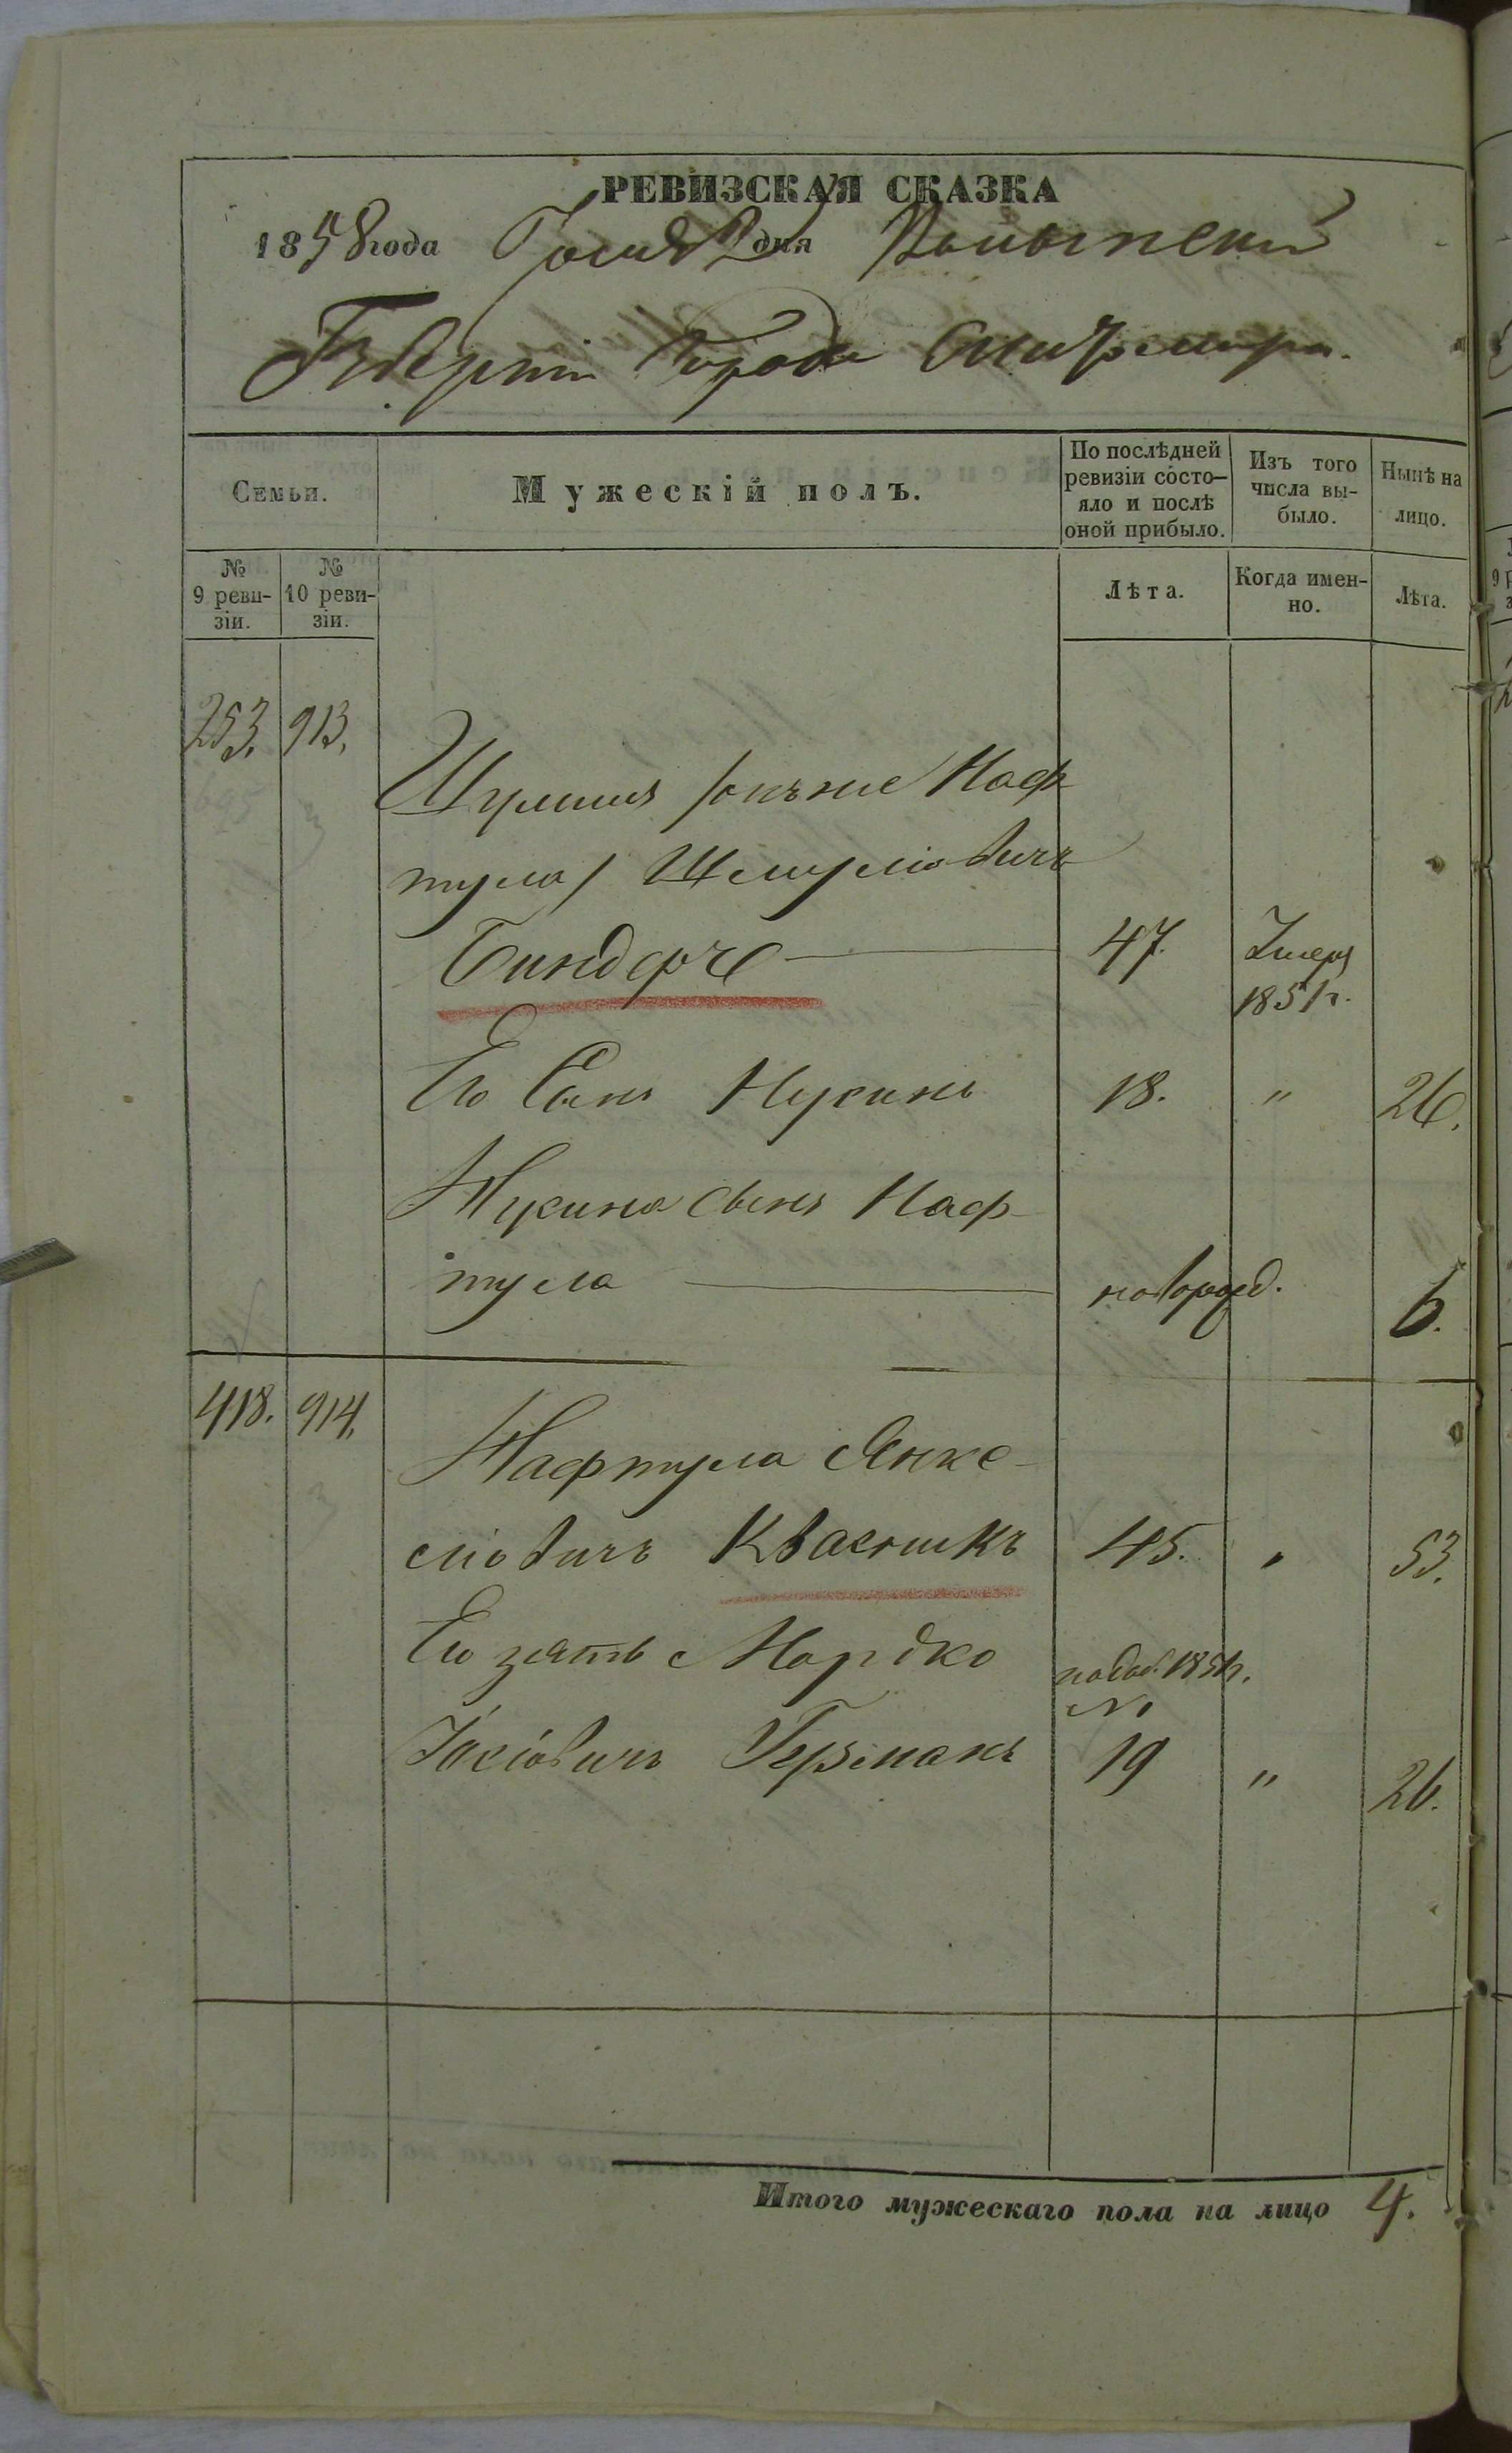 РЕВИЗСКАЯ СКАЗКА
1858 года Іюня 2 дня Волынской
Губерніи Города Житомира.
Семьи.
Мужескій полъ.
По послѣдней ревизіи состо-
яло и послѣ
оной прибыло.
Изъ того
числа вы-
было.
Нынѣ на
лицо.
№
9 реви-
зіи.
№
10 реви-
зіи.
Лѣта.
Когда имен-
но.
Лѣта.
253. 913.
Шулимъ Наф
тула/ Шмуліовичъ
Биндеръ 47. Умеръ
1851 г.
Его Сынъ Нусинъ 18. " 26.
Нусина сынъ Наф-
тула новорожд. 6.
418. 914.
Нафтула Янке-
ліовичъ Квасникъ 45. " 53.
Его зять Мордко 1851 г.
Іосіовичъ Герзманъ 19 " 26.
Итого мужескаго пола на лицо 4.